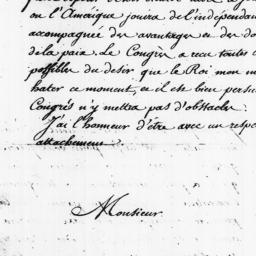 ou l'Amérique jouira de l'independan
accompagnée des avantages et des do
de la paix. Le Congrès a reçu toutes
possibles du desir que le Roi mon m
hater ce moment, et il est bien persu
Congrés n'y mettra pas d'obstacles.
J'ai l'honneur d'être avec un resp
attachement
Monsieur